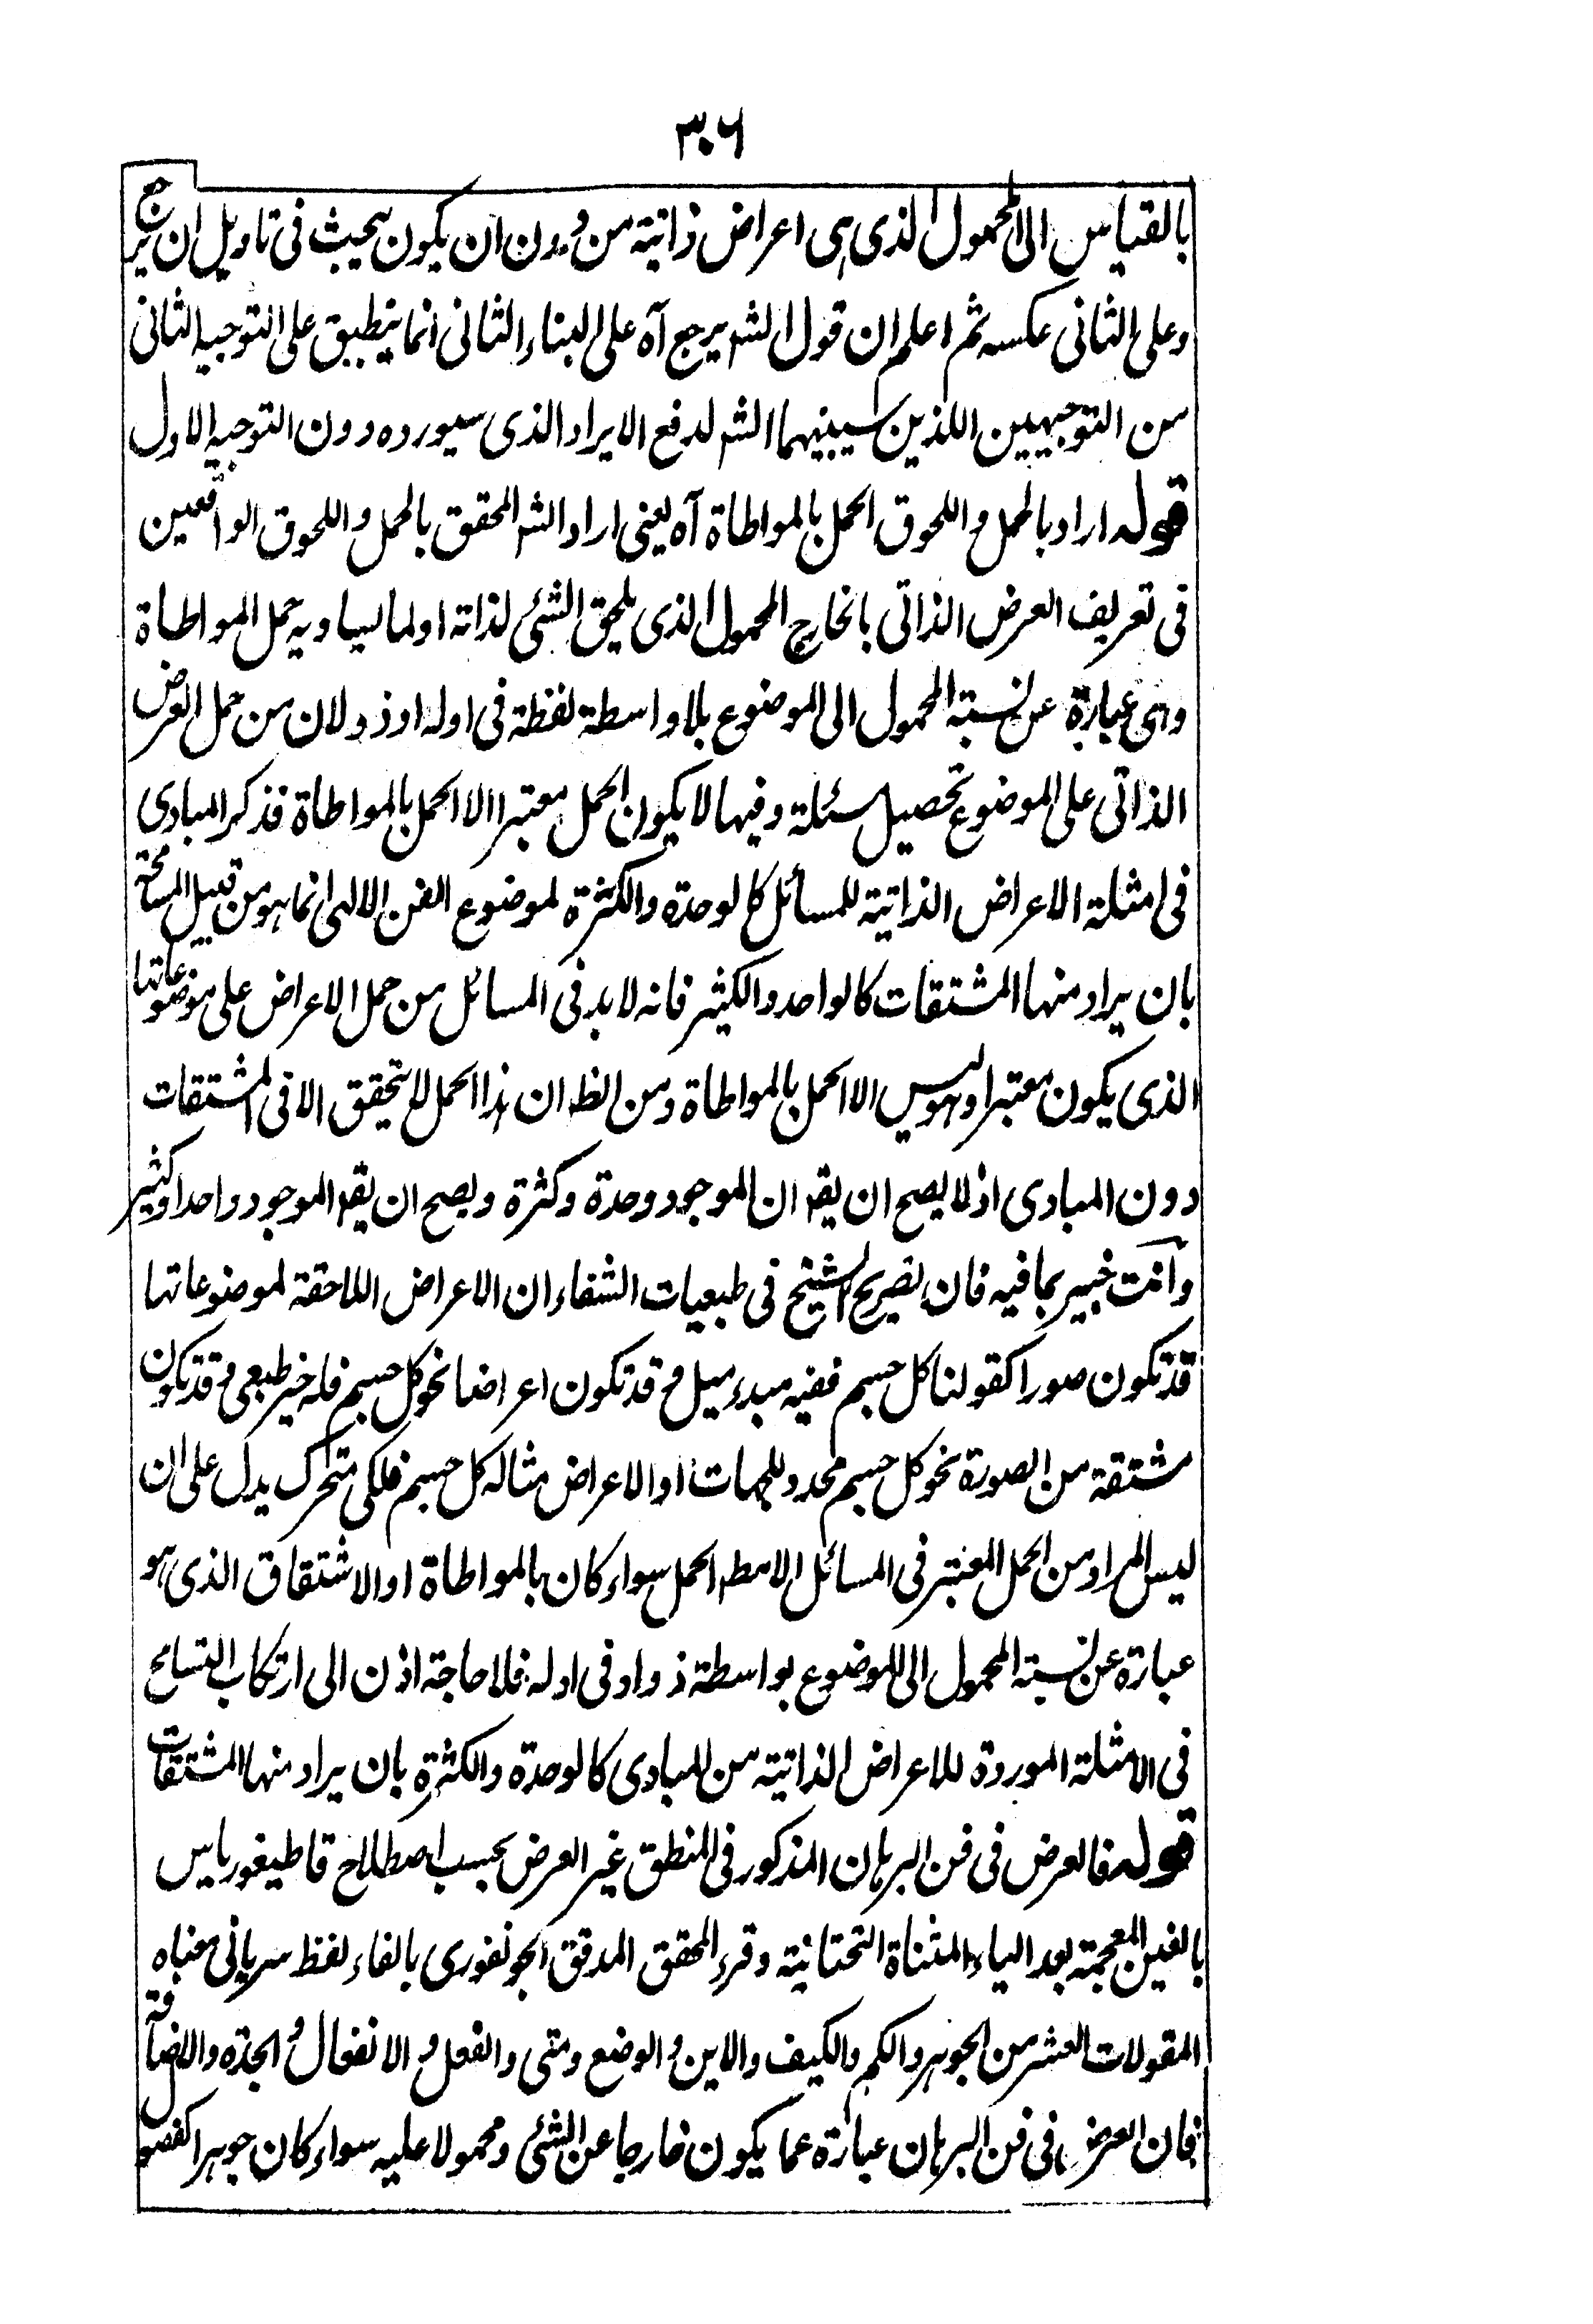 ٣٠٦
بالقياس الى المحمول الذى هى اعراض ذاتية من دون ان يكون بحيث فى تاويل ان يرجع
وعلى الثانى عكسه ثم اعلم ان قول الشـ يرجع آه على البناء الثانى انما ينطبق على التوجيه الثانى
من التوجيهين اللذين سيبينهما الشـ لدفع الايراد الذى سيورده دون التوجيه الاول
قوله اراد بالحمل واللحوق الحمل بالمواطاة آه يعنى اراد الشـ المحقق بالحمل واللحوق الواقعين
فى تعريف العرض الذاتى بالخارج المحمول الذى يلحق الشئ لذاته او لما يساويه حمل المواطاة
وهى عبارة عن نسبة المحمول الى الموضوع بلا واسطة لفظة فى اوله او ذو لان من حمل العرض
الذاتى على الموضوع تحصيل مسئلة وفيها لا يكون الحمل معتبرا الا الحمل بالمواطاة فذكر المبادى
فى امثلة الاعراض الذاتية للمسائل كالوحدة والكثرة لموضوع الفن الالهى انما هو من قبيل المسامحة
بان يراد منها المشتقات كالواحد والكثير فانه لا بد فى المسائل من حمل الاعراض على موضوعاتها
الذى يكون معتبرا وهو ليس الا الحمل بالمواطاة ومن الظـ ان هذا الحمل لا يتحقق الا فى المشتقات
دون المبادى اذ لا يصح ان يقـ ان الموجود وحدة وكثرة ويصح ان يقـ الموجود واحد او كثير
وانت خبير بما فيه فان تصريح الشيخ فى طبعيات الشفاء ان الاعراض اللاحقة لموضوعاتها
قد تكون صورا كقولنا كل جسم ففيه مبدء ميل وقد تكون اعراضا نحو كل جسم فله حيز طبعى وقد تكون
مشتقة من الصورة نحو كل جسم محدد للجهات او الاعراض مثاله كل جسم فلكى متحرك يدل على ان
ليس المراد من الحمل المعتبر فى المسائل الا مطـ الحمل سواء كان بالمواطاة او الاشتقاق الذى هو
عبارة عن نسبة المحمول الى الموضوع بواسطة ذو او فى او له فلا حاجة اذن الى ارتكاب التسامح
فى الامثلة الموردة للاعراض الذاتية من المبادى كالوحدة والكثرة بان يراد منها المشتقات
قوله فالعرض فى فن البرهان المذكور فى المنطق غير العرض بحسب اصطلاح قاطيغورياس
بالغين المعجمة بعد الياء المثناة التحتانية وقرء المحقق المدقق الجونفورى بالفاء لفظ سريانى معناه
المقولات العشر من الجوهر والكم والكيف والاين والوضع ومتى والفعل والانفعال والجدة والاضافة
فان العرض فى فن البرهان عبارة عما يكون خارجا عن الشئ ومحمولا عليه سواء كان جوهرا كفصول